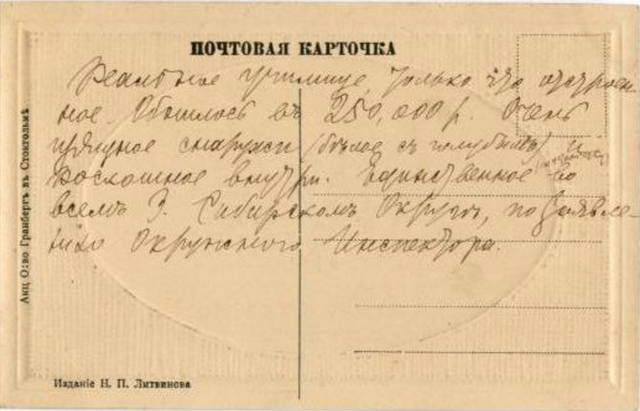 ПОЧТОВАЯ КАРТОЧКА
Реальное училище, только что отстроен-
ное. Обошлось въ 250,000 р. Очень
снаружи (бѣлое съ голубымъ) и
роскошное внутри. Единственное во
всемъ З. Сибирскомъ Округѣ, по заявле-
нiю Окружного Инспектора.
Акц. О-во Гранбергъ въ Стокгольмѣ
Изданіе Н. П. Литвинова